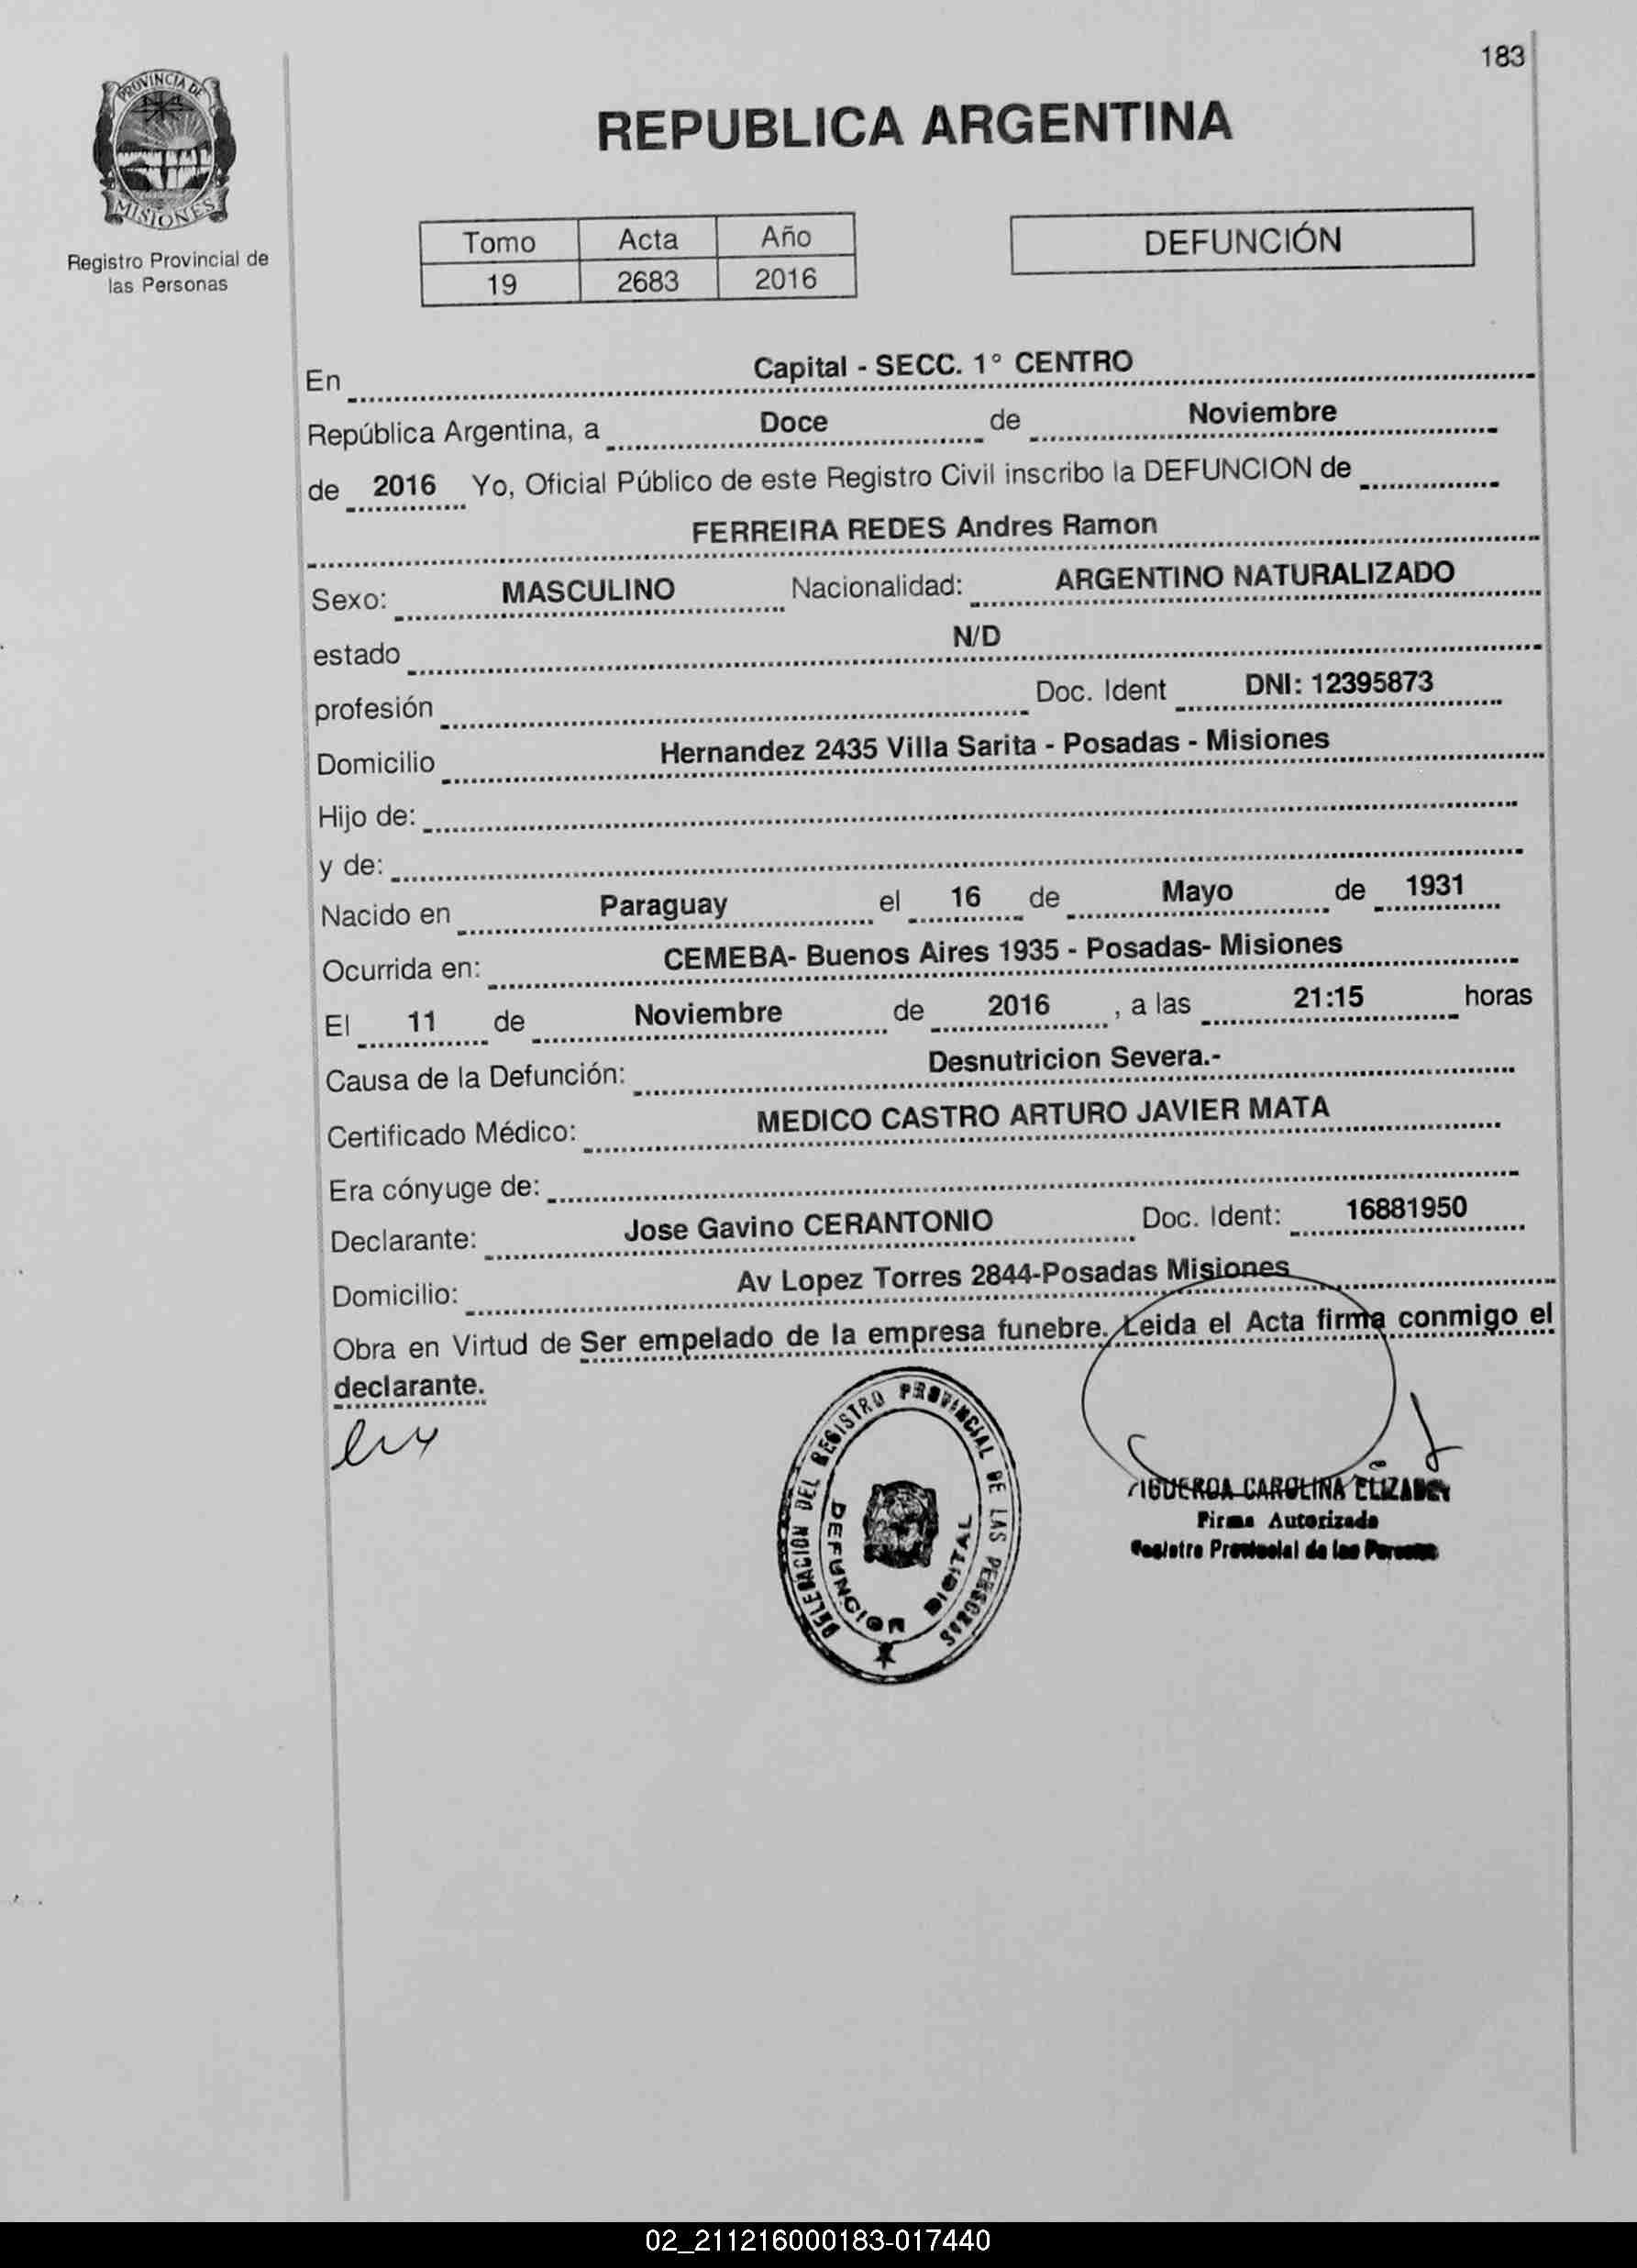 183
PROVINCIA DE
MISIONES
Registro Provincial de
las Personas
REPUBLICA ARGENTINA
Tomo Acta Año
19 2683 2016
DEFUNCIÓN
En Capital - SECC. 1° CENTRO
República Argentina, a Doce de Noviembre
de 2016 Yo, Oficial Público de este Registro Civil inscribo la DEFUNCION de
FERREIRA REDES Andres Ramon
Sexo: MASCULINO Nacionalidad: ARGENTINO NATURALIZADO
estado N/D
profesión Doc. Ident DNI: 12395873
Domicilio Hernandez 2435 Villa Sarita - Posadas - Misiones
Hijo de:
y de:
Nacido en Paraguay el 16 de Mayo de 1931
Ocurrida en: CEMEBA- Buenos Aires 1935 - Posadas- Misiones
El 11 de Noviembre de 2016 , a las 21:15 horas
Causa de la Defunción: Desnutricion Severa.-
Certificado Médico: MEDICO CASTRO ARTURO JAVIER MATA
Era cónyuge de:
Declarante: Jose Gavino CERANTONIO Doc. Ident: 16881950
Domicilio: Av Lopez Torres 2844-Posadas Misiones
Obra en Virtud de Ser empelado de la empresa funebre. Leida el Acta firma conmigo el
declarante.
DELEGACION DEL REGISTRO PROVINCIAL DE LAS PERSONAS
DEFUNCION DIGITAL
IGUEROA CAROLINA ELIZABET
Firma Autorizada
Registro Provincial de las Personas
02_211216000183-017440